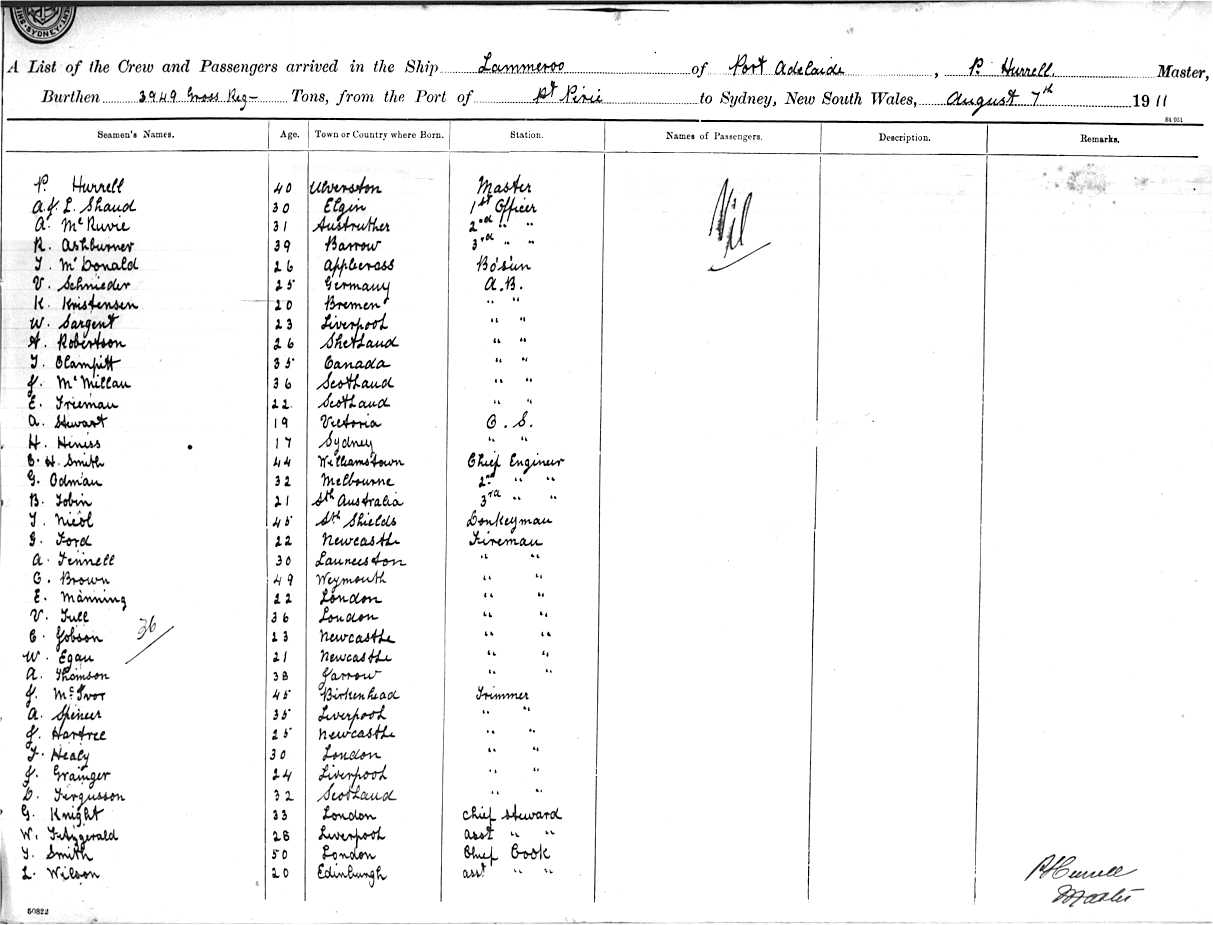 SYDNEY
A List of the Crew and Passengers arrived in the Ship Lammeroo of Port Adelaide, P. Hurrell Master,
Burthen 3949 Gross Reg- Tons, from the Port of Pt Pirie to Sydney, New South Wales, August 7th 1911
84 051
Seamen's Names. Age. Town or Country where Born. Station. Names of Passengers. Description. Remarks.
P. Hurrell 40 Ulverston Master
A. J. L. Shand 30 Elgin 1st Officer Nil
A. McRuvie 31 Anstruther 2nd " "
R. Ashburner 39 Barrow 3rd " "
T. McDonald 26 Applecross Bo'sun
V. Schnieder 25 Germany A.B.
K. Kristensen 20 Bremen " "
W. Sargent 23 Liverpool " "
A. Robertson 26 Shetland " "
T. Clampitt 35 Canada " "
J. McMillan 36 Scotland " "
E. Frieman 22 Scotland " "
A. Stewart 19 Victoria O.S.
H. Hiniss 17 Sydney " "
C. H. Smith 44 Williamstown Chief Engineer
G. Odman 32 Melbourne 2nd " "
B. Tobin 21 Sth Australia 3rd " "
T. Nicol 45 Sth Shields Donkeyman
G. Ford 22 Newcastle Fireman
A. Fennell 30 Launceston " "
C. Brown 49 Weymouth " "
E. Manning 22 London " "
V. Tull 36 London " "
C. Jobson 23 Newcastle " "
36
W. Egan 21 Newcastle " "
A. Thomson 38 Jarrow " "
J. McIvor 45 Birkenhead Trimmer
A. Spencer 35 Liverpool " "
J. Hartree 25 Newcastle " "
T. Healy 30 London " "
J. Grainger 24 Liverpool " "
D. Fergusson 32 Scotland " "
G. Knight 33 London Chief Steward
W. Fitzgerald 28 Liverpool asst " "
T. Smith 50 London Chief Cook
L. Wilson 20 Edinburgh asst " "
P. Hurrell
Master
50822